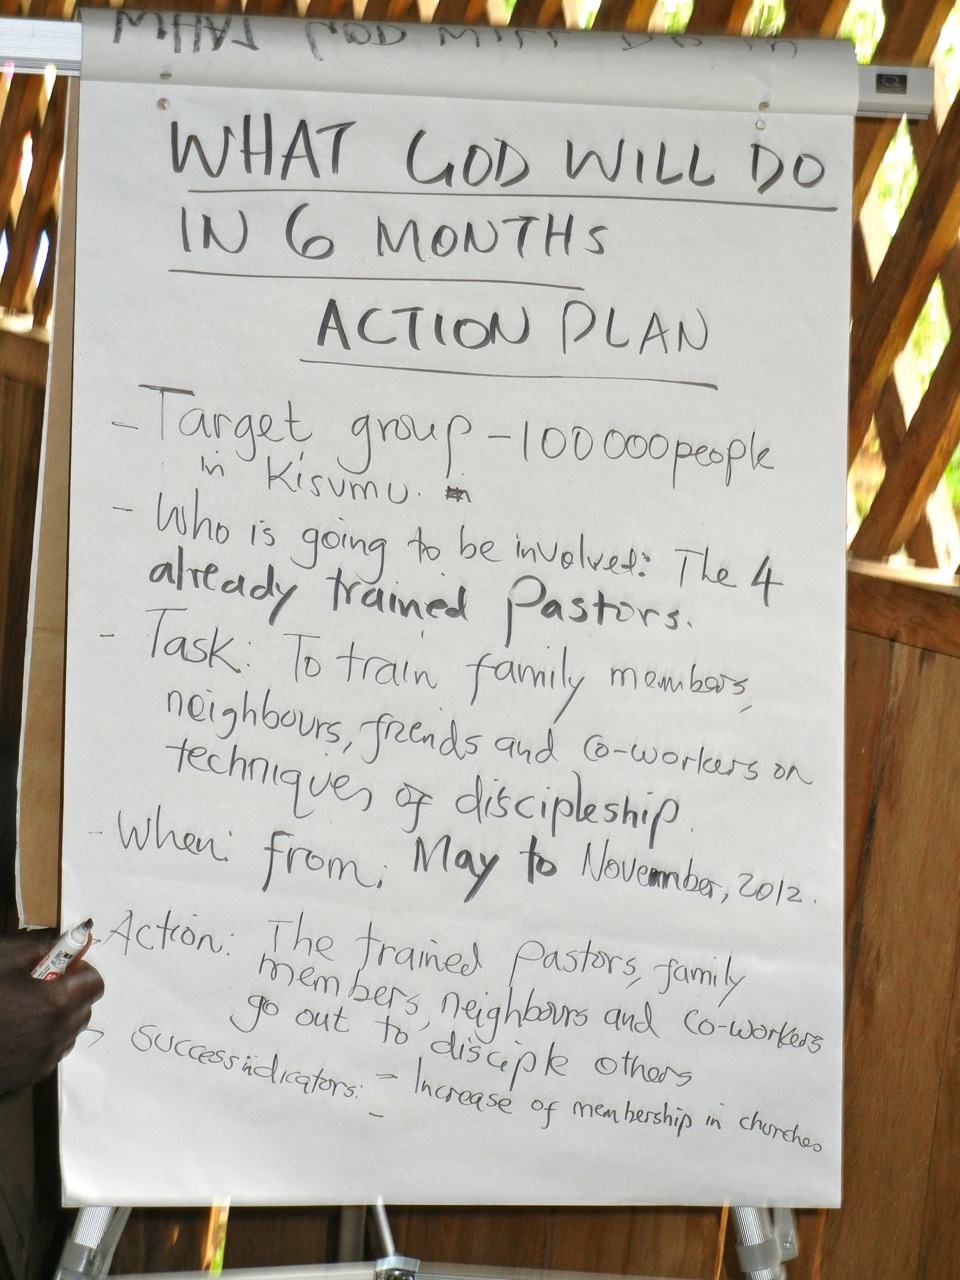 WHAT GOD WILL DO IN
WHAT GOD WILL DO
IN 6 MONTHS
ACTION PLAN
- Target group - 100 000 people
in Kisumu.
- Who is going to be involved: The 4
already trained Pastors.
- Task: To train family members,
neighbours, friends and co-workers on
techniques of discipleship.
- When: from: May to November, 2012.
- Action: The trained pastors, family
members, neighbours and co-workers
go out to disciple others
- Success indicators: - Increase of membership in churches
-